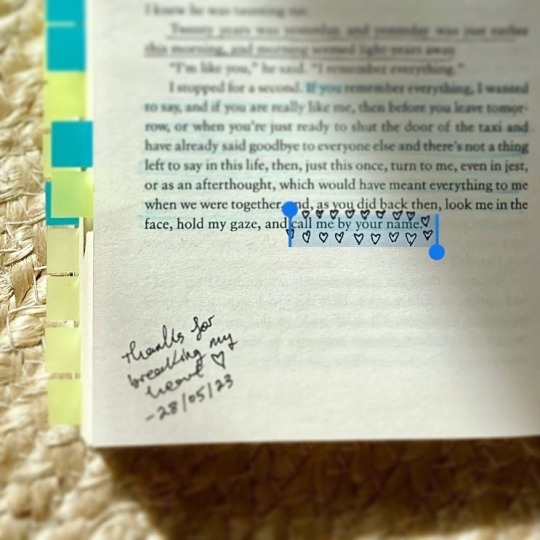 I knew he was taunting me.
Twenty years was yesterday, and yesterday was just earlier
this morning, and morning seemed light-years away.
"I'm like you," he said. "I remember everything."
I stopped for a second. If you remember everything, I wanted
to say, and if you are really like me, then before you leave tomor-
row, or when you're just ready to shut the door of the taxi and
have already said goodbye to everyone else and there's not a thing
left to say in this life, then, just this once, turn to me, even in jest,
or as an afterthought, which would have meant everything to me
when we were together, and, as you did back then, look me in the
face, hold my gaze, and call me by your name.
thanks for
breaking my
heart ♡
-28/05/23